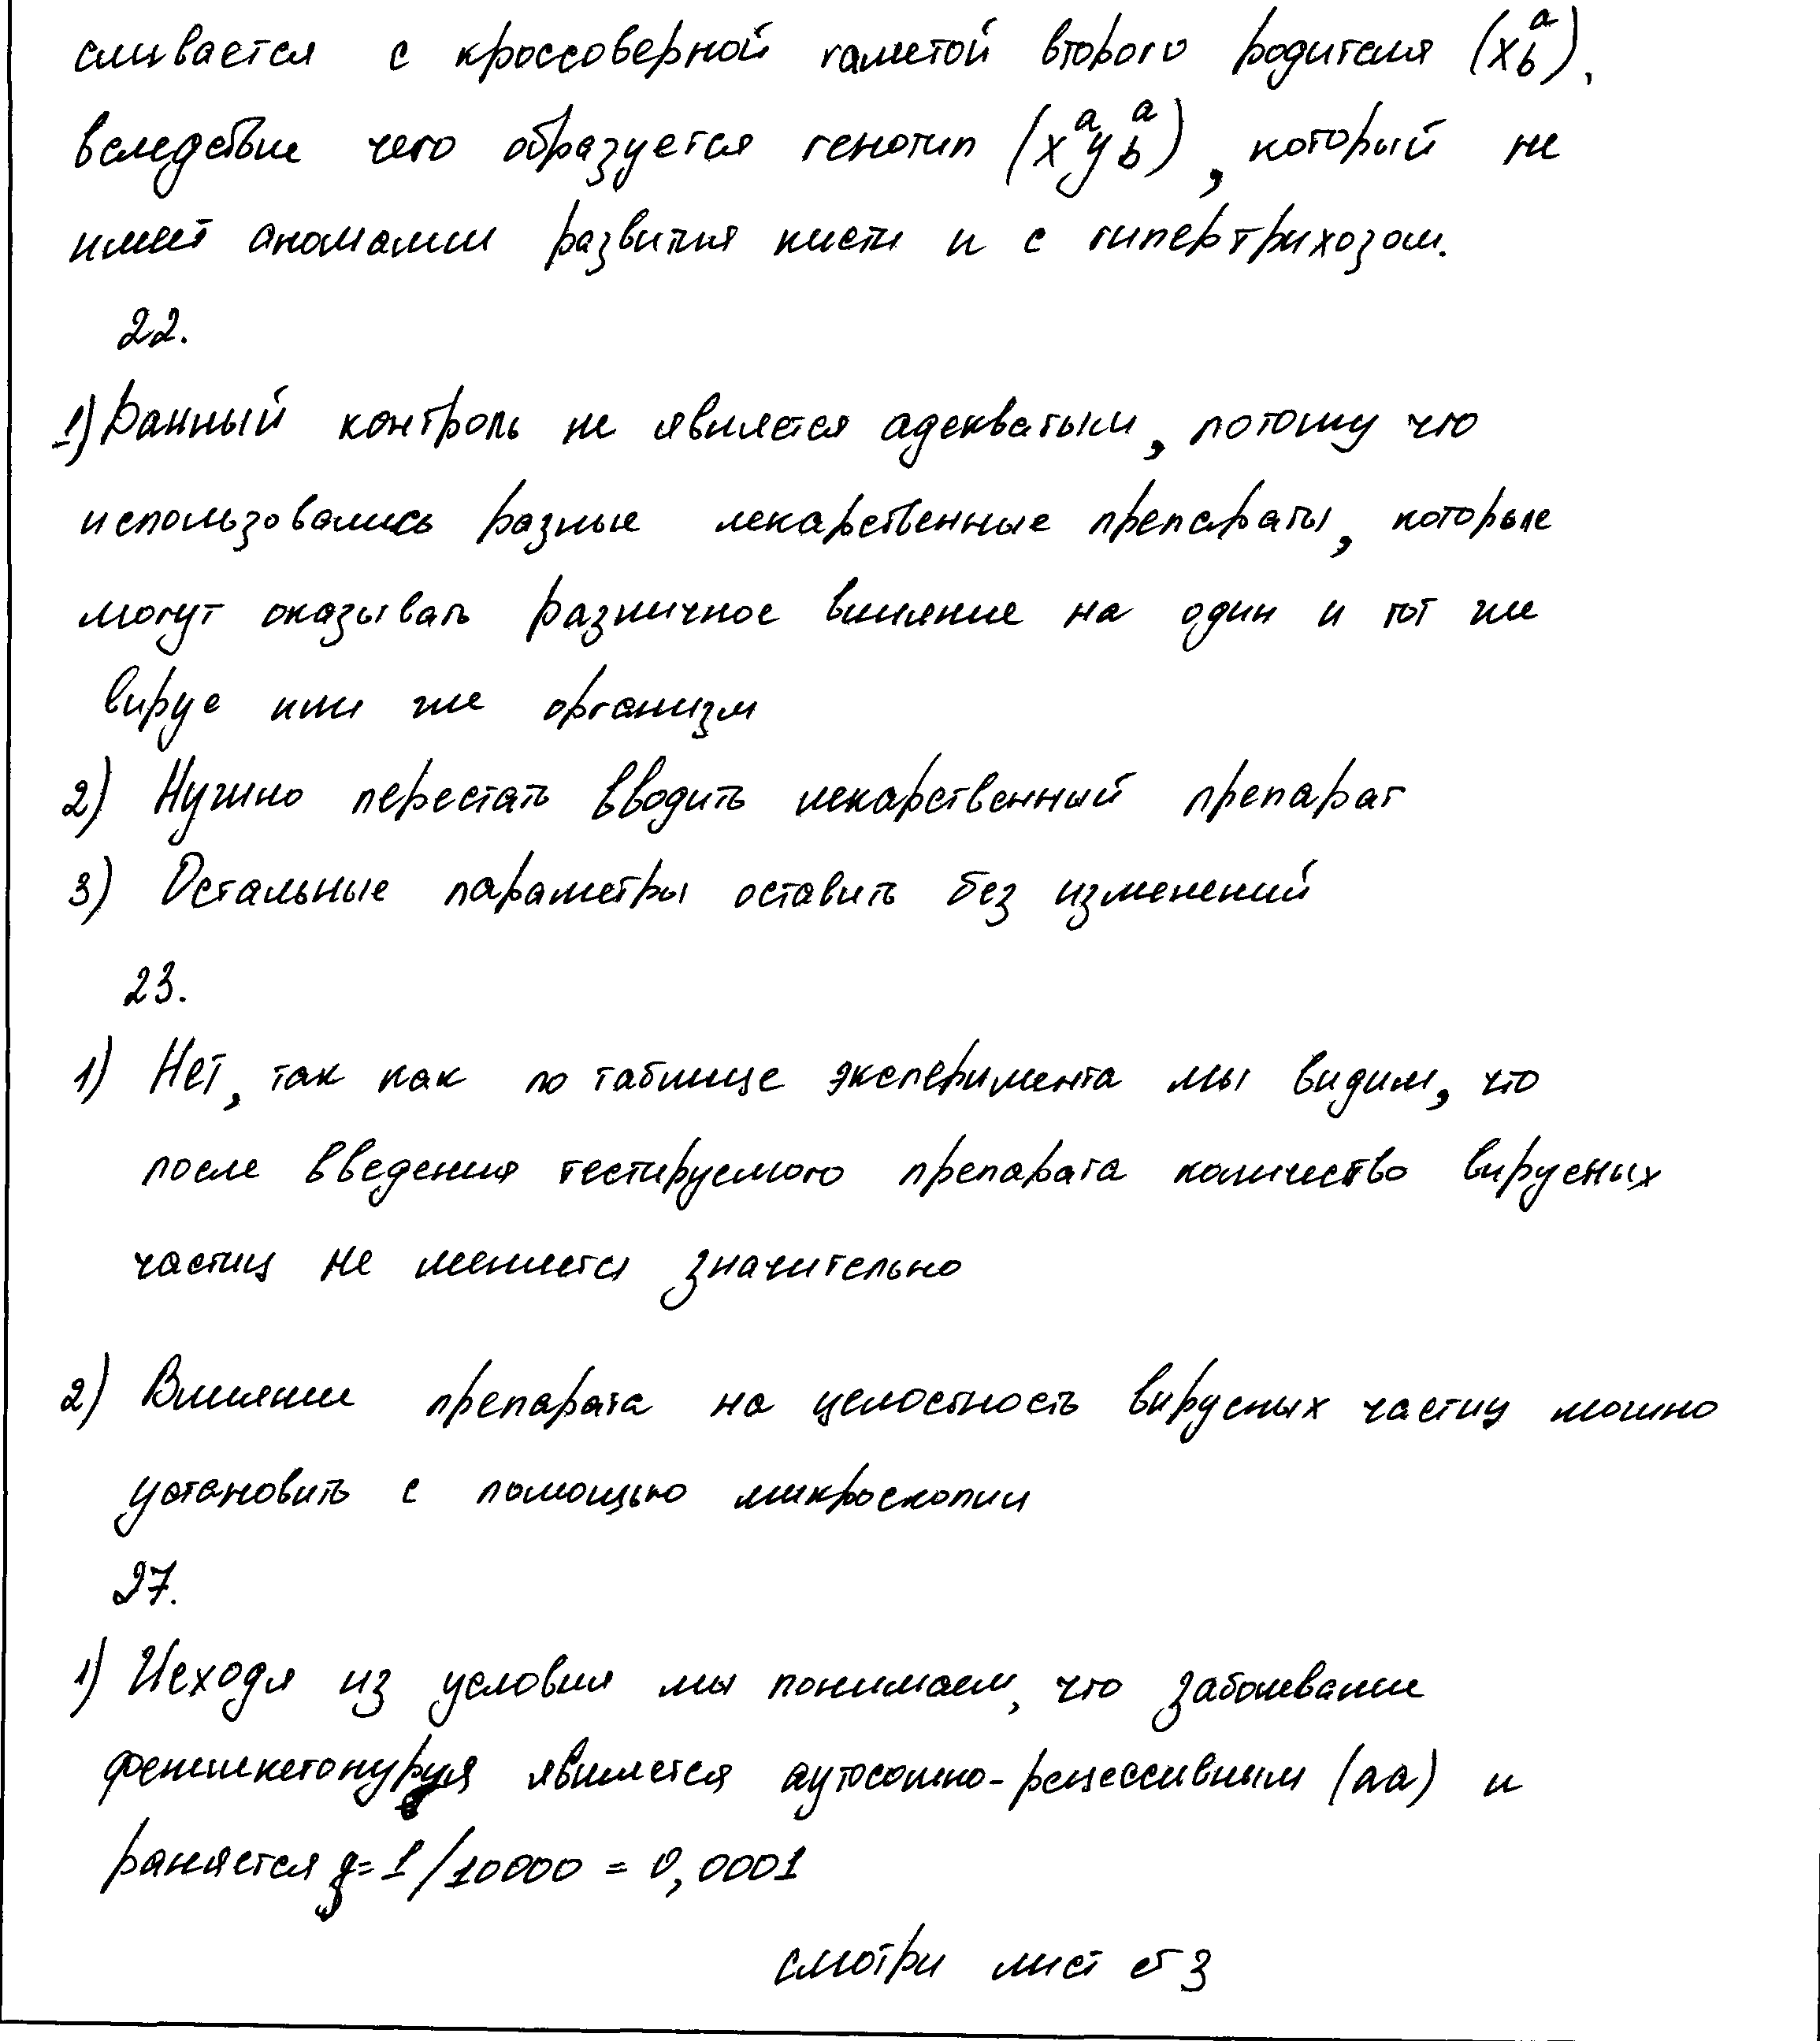 сливается с кроссоверной гаметой второго родителя (x b^a),
вследствие чего образуется генотип (x^a y b^a), который не
имеет аномалии развития кисти и с гипертрихозом.
22.
1) Данный контроль не является адекватым, потому что
использовались разные лекарственные препараты, которые
могут оказывать различное влияние на один и тот же
вирус или же организм
2) Нужно перестать вводить лекарственный препарат
3) Остальные параметры оставить без изменений
23.
1) Нет, так как по таблице эксперимента мы видим, что
после введения тестируемого препарата количество вирусных
частиц не меняется значительно
2) Влияние препарата на целостность вирусных частиц можно
установить с помощью микроскопии
27.
1) Исходя из условия мы понимаем, что заболевание
является аутосомно-рецессивным (аа) и
= 1/10000 = 0,0001
смотри лист 3